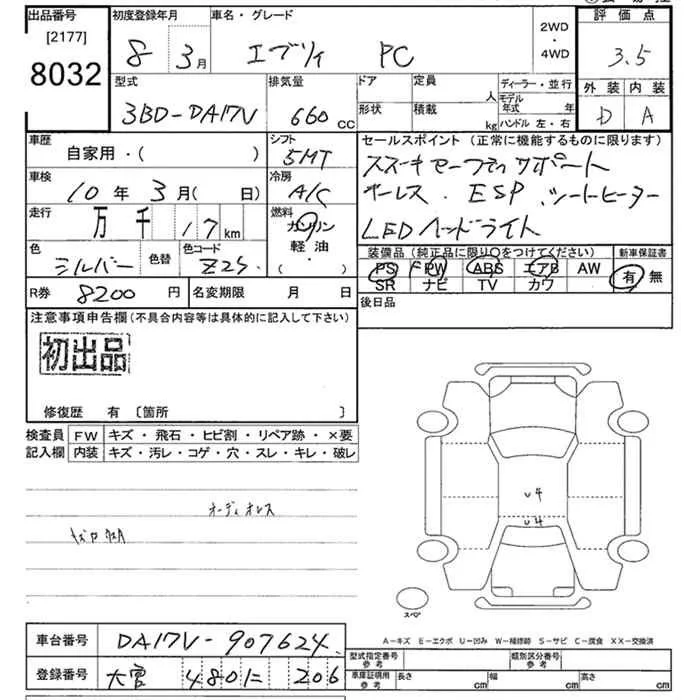 出品番号 初度登録年月 車名・グレード 2WD・4WD 評価点
[2177]
8032
8年 3月 エブリィ PC 3.5
型式 排気量 ドア 定員 人 ディーラー・並行 外装 内装
3BD-DA17V 660cc 形状 積載 kg モデル年式 年 ハンドル 左・右 D A
車歴 シフト セールスポイント(正常に機能するものに限ります)
自家用・( ) 5MT
車検 冷房
10年 3月( 日) A/C
ESP シートヒーター
走行 燃料
万 千 17km ガソリン
LEDヘッドライト
軽油
・( )
色 色替 色コード
シルバー Z2S
装備品(純正品に限り○をつけてください) 新車保証書
PS PW ABS エアB AW 有 無
SR ナビ TV カワ
R券 8200円 名変期限 月 日 後日品
注意事項申告欄(不具合内容等は具体的に記入して下さい)
初出品
修復歴 有 〔箇所 〕
検査員 FW キズ・飛石・ヒビ割・リペア跡・×要
記入欄 内装 キズ・汚レ・コゲ・穴・スレ・キレ・破レ
オーディオレス
U4
U4
スペア
A-キズ E-エクボ U-凹み W-補修跡 S-サビ C-腐食 XX-交換済
車台番号 DA17V-907624
登録番号 480 に 206
型式指定番号 参考 類別区分番号 参考
車庫証明用 参考 長さ cm 幅 cm 高さ cm